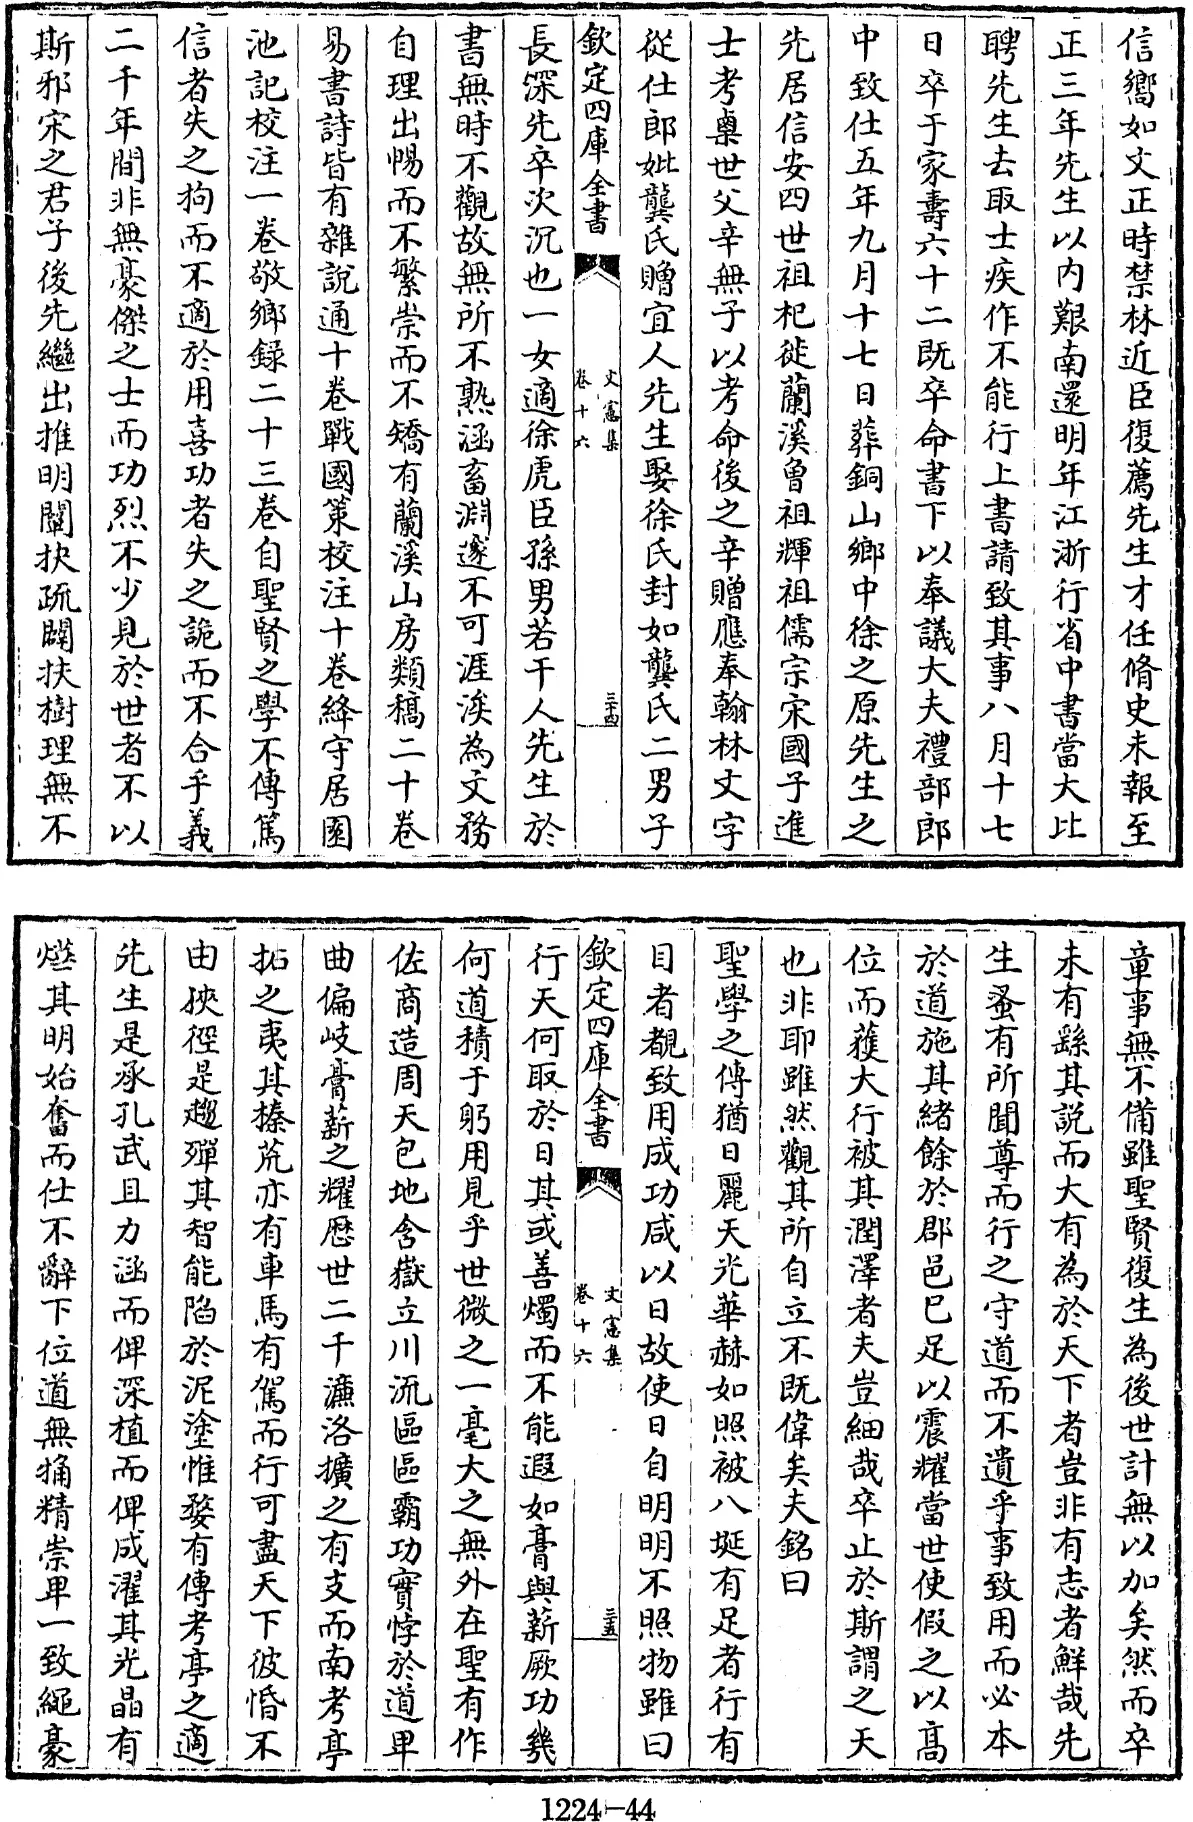 信嚮如文正時禁林近臣復薦先生才任脩史未報至
正三年先生以內艱南還明年江浙行省中書當大比
聘先生去取士疾作不能行上書請致其事八月十七
日卒于家壽六十二既卒命書下以奉議大夫禮部郎
中致仕五年九月十七日葬銅山鄉中徐之原先生之
先居信安四世祖杞徙蘭溪曾祖輝祖儒宗宋國子進
士考㮚世父辛無子以考命後之辛贈應奉翰林文字
從仕郎妣龔氏贈宜人先生娶徐氏封如龔氏二男子
欽定四庫全書
文憲集
卷十六
三十四
長深先卒次沉也一女適徐虎臣孫男若干人先生於
書無時不觀故無所不熟涵畜淵邃不可涯涘為文務
自理出暢而不繁崇而不矯有蘭溪山房類稿二十卷
易書詩皆有雜說通十卷戰國策校注十卷絳守居園
池記校注一卷敬鄉録二十三卷自聖賢之學不傳篤
信者失之拘而不適於用喜功者失之詭而不合乎義
二千年間非無豪傑之士而功烈不少見於世者不以
斯邪宋之君子後先繼出推明闡抉疏闢扶樹理無不
章事無不備雖聖賢復生為後世計無以加矣然而卒
未有繇其說而大有為於天下者豈非有志者鮮哉先
生蚤有所聞尊而行之守道而不遺乎事致用而必本
於道施其緒餘於郡邑已足以震耀當世使假之以高
位而獲大行被其潤澤者夫豈細哉卒止於斯謂之天
也非耶雖然觀其所自立不既偉矣夫銘曰
聖學之傳猶日麗天光華赫如照被八埏有足者行有
目者覩致用成功咸以日故使日自明明不照物雖曰
欽定四庫全書
文憲集
卷十六
三十五
行天何取於日其或善燭而不能遐如膏與薪厥功幾
何道積于躬用見乎世微之一毫大之無外在聖有作
佐商造周天包地含嶽立川流區區霸功實悖於道卑
曲偏岐膏薪之耀歷世二千濂洛擴之有支而南考亭
拓之夷其榛荒亦有車馬有駕而行可盡天下彼惛不
由狹徑是趨殫其智能陷於泥塗惟婺有傳考亭之適
先生是承孔武且力涵而俾深植而俾成濯其光晶有
爗其明始奮而仕不辭下位道無捔精崇卑一致繩豪